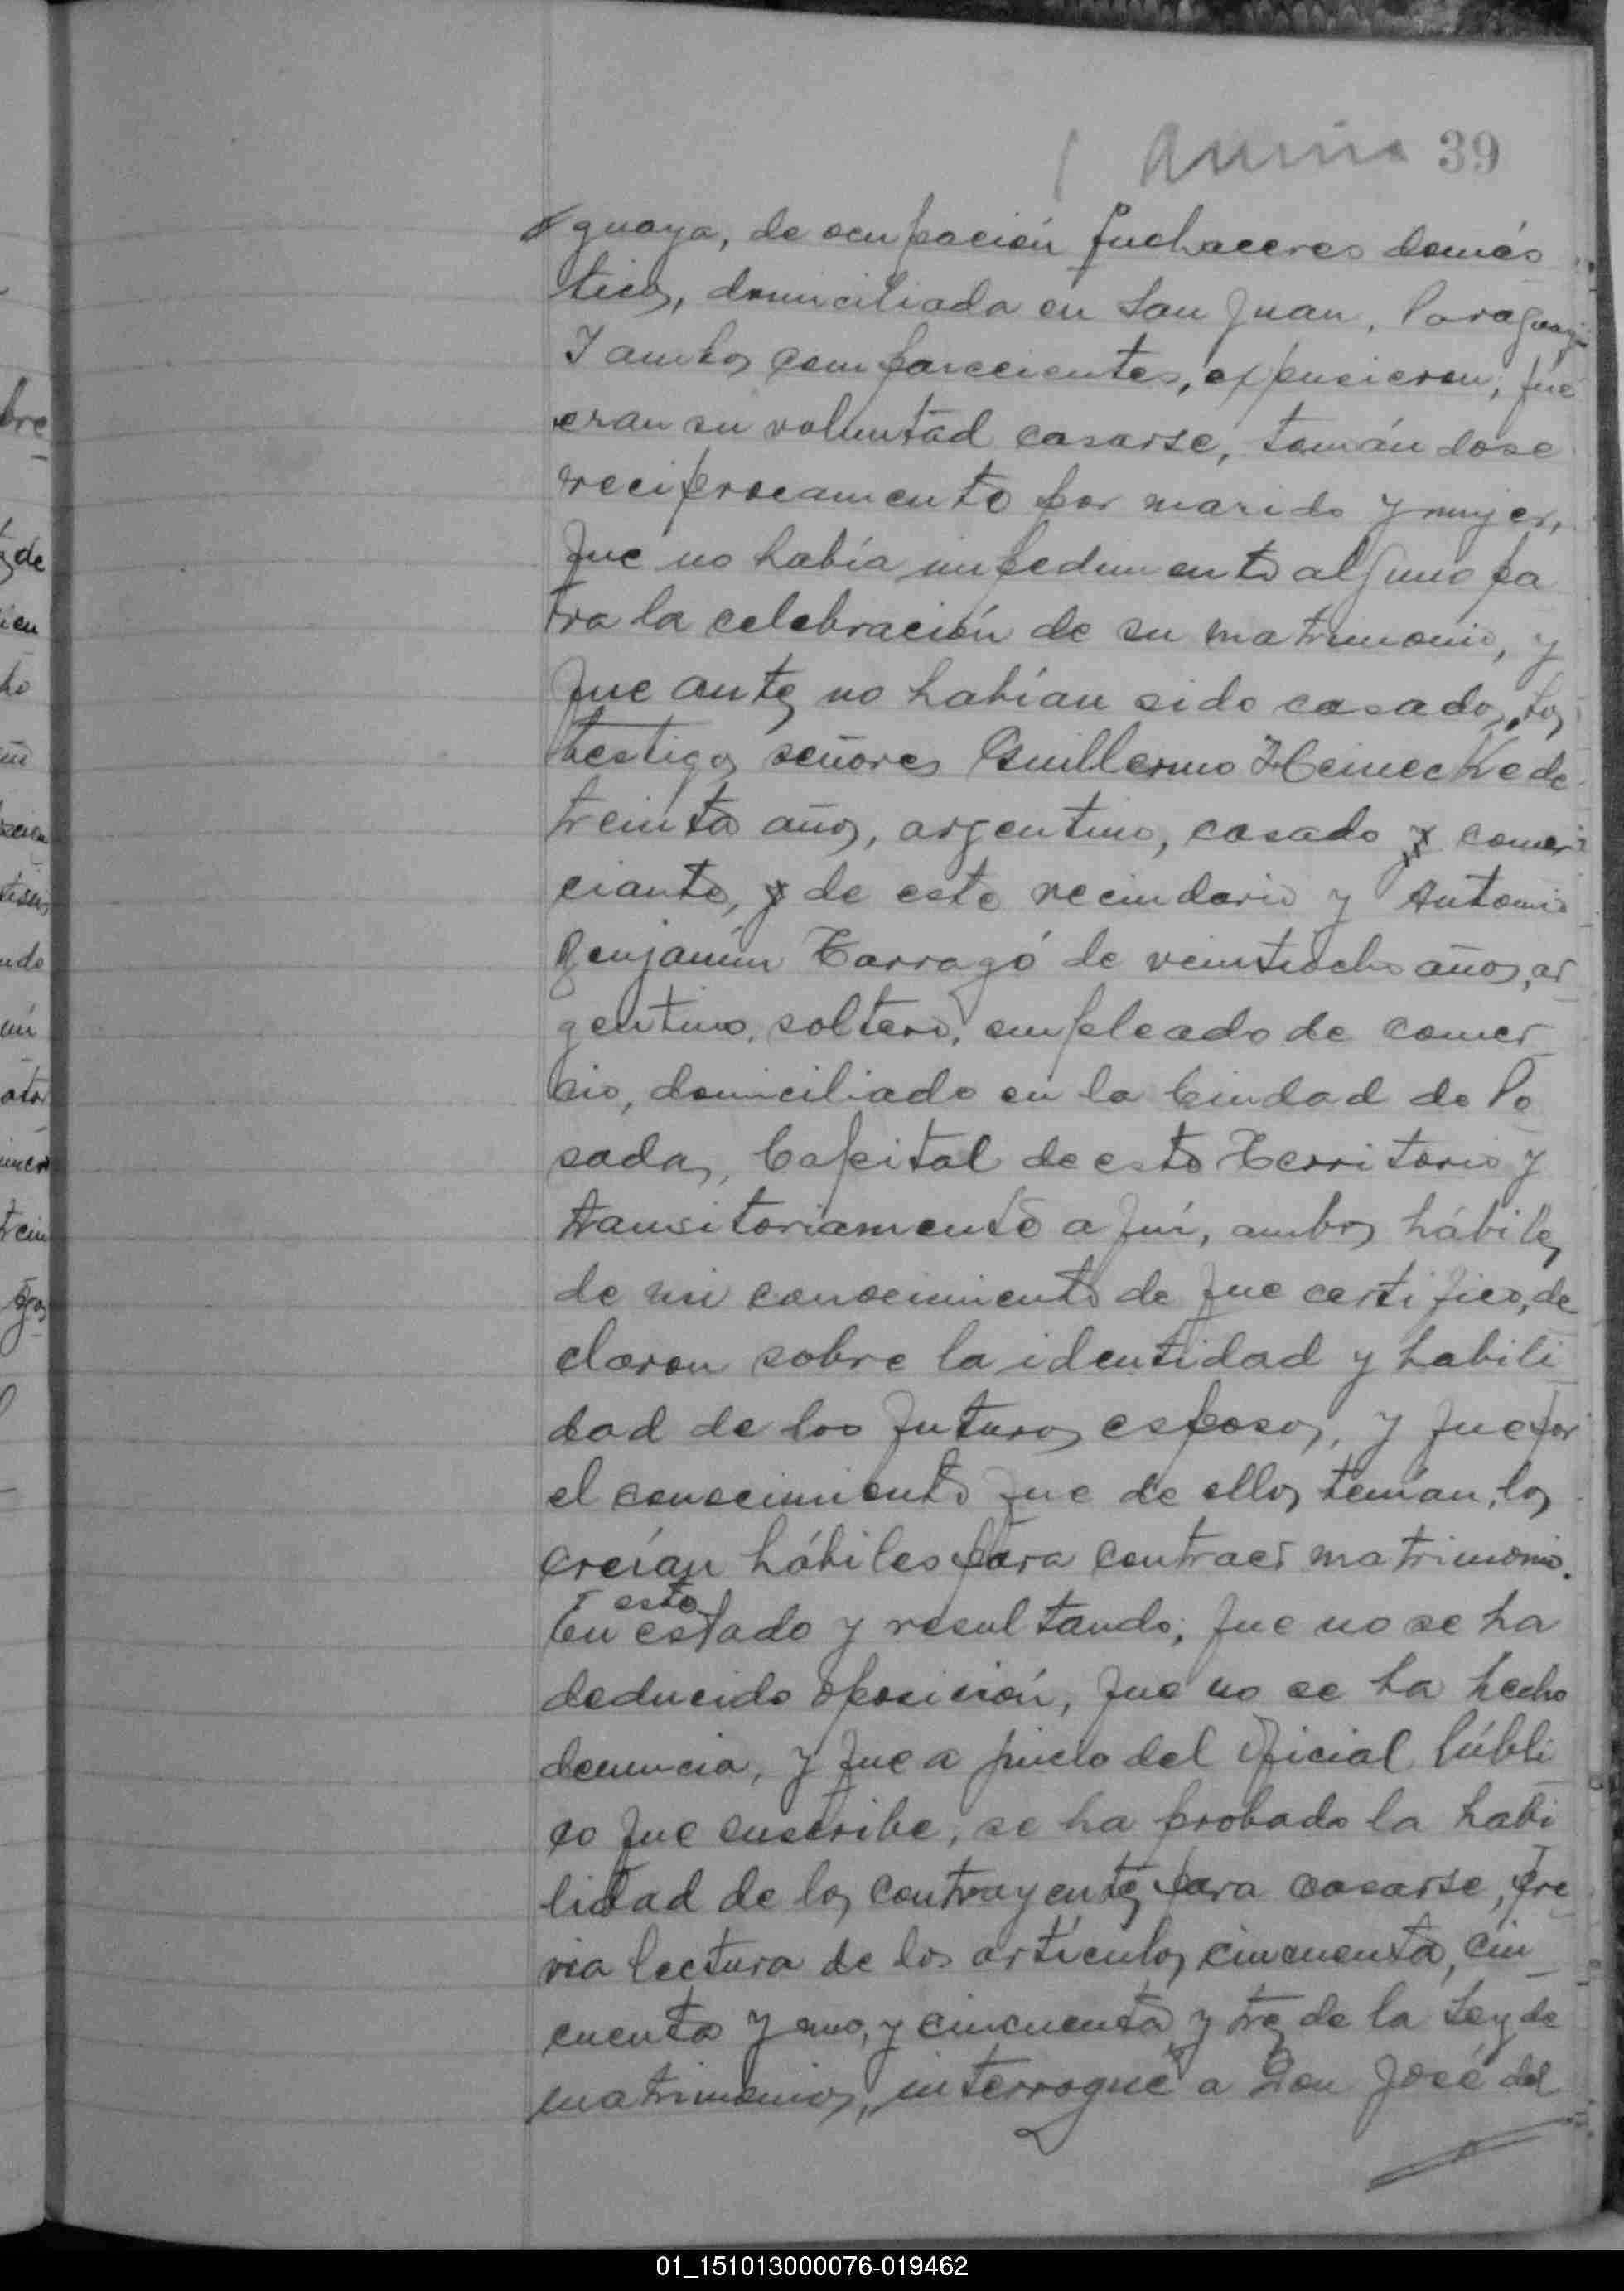 39
guaya, de ocupación quehaceres domés
ticos, domiciliada en San Juan, Paraguay.
Y ambos comparecientes, expusieron, que
eran su voluntad casarse, tomándose
reciprocamente por marido y mujer,
que no había impedimento alguno pa
ra la celebración de su matrimonio, y
que antes no habían sido casados, los
testigos señores Guillermo Heinecke de
treinta años, argentino, casado y comer
ciante, y de este vecindario y Antonio
Benjamín Tarragó de veintiocho años, ar
gentino, soltero, empleado de comer
cio, domiciliado en la Ciudad de Po
sadas, Capital de este Territorio y
transitoriamente aquí, ambos hábiles
de mi conocimiento de que certifico, de
claron sobre la identidad y habili
dad de los futuros esposos, y que por
el conocimiento que de ellos tenían, los
creían hábiles para contraer matrimonio.
En este estado y resultando, que no se ha
deducido oposición, que no se ha hecho
denuncia, y que a juicio del Oficial Públi
co que suscribe, se ha probado la habi
lidad de los contrayentes para casarse, pre
via lectura de los artículos cincuenta, cin
cuenta y uno, y cincuenta y tres de la Ley de
matrimonios, interrogué a Don José del
01_151013000076-019462